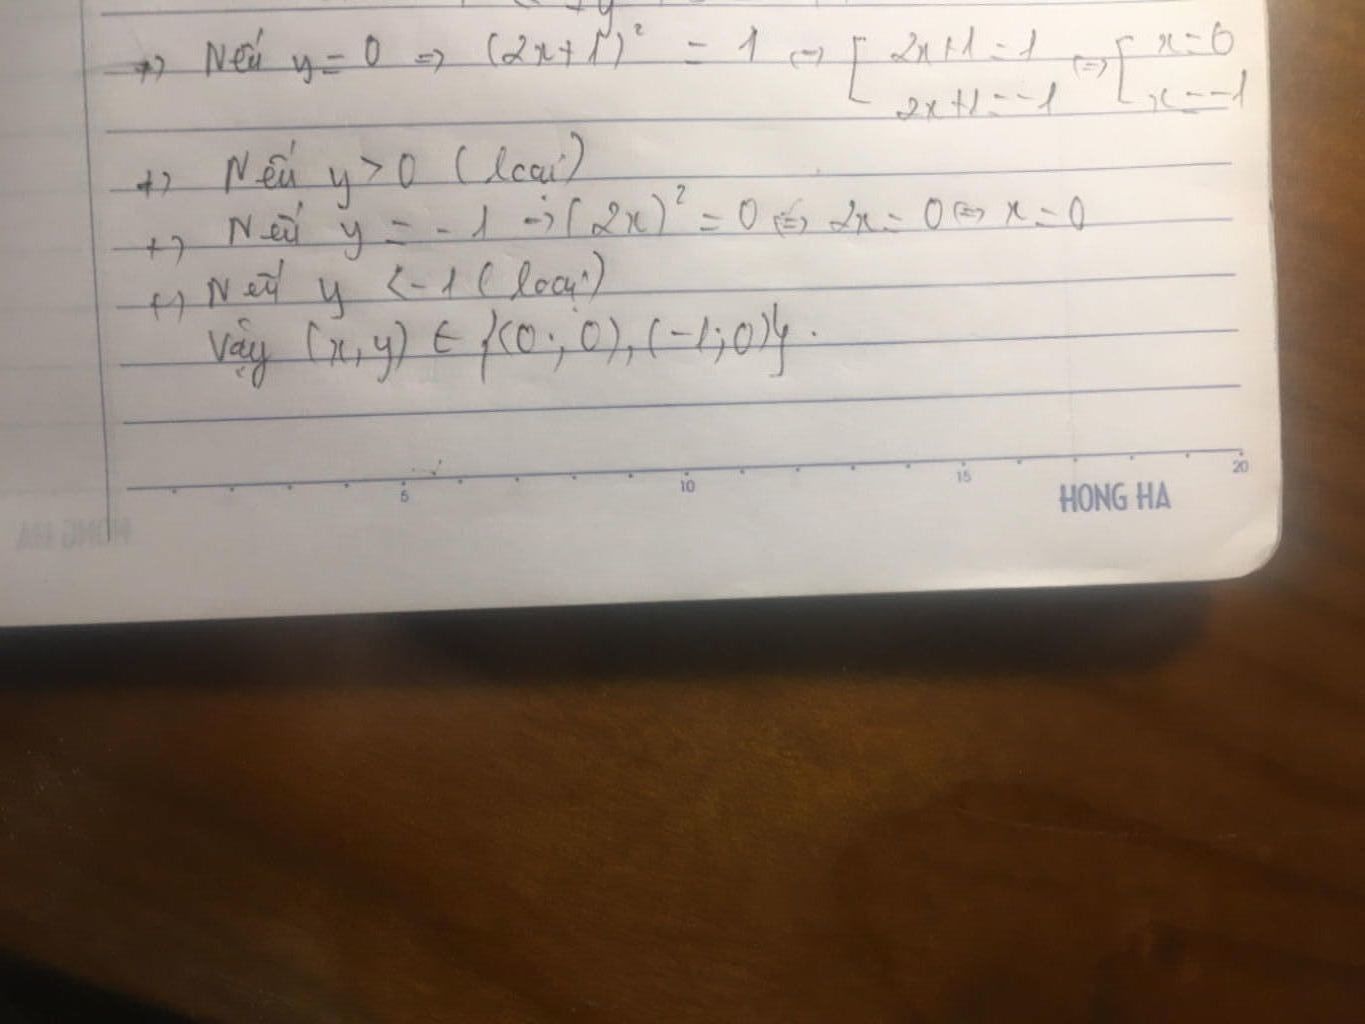 +) Nếu y = 0 => (2x+1)² = 1 <=> [ 2x+1 = 1 <=> [ x = 0
2x+1 = -1 x = -1
+) Nếu y > 0 (loại)
+) Nếu y = -1 => (2x)² = 0 <=> 2x = 0 <=> x = 0
+) Nếu y < -1 (loại)
Vậy (x, y) ∈ {(0; 0), (-1; 0)}.
5 10 15 20
HONG HA
HONG HA